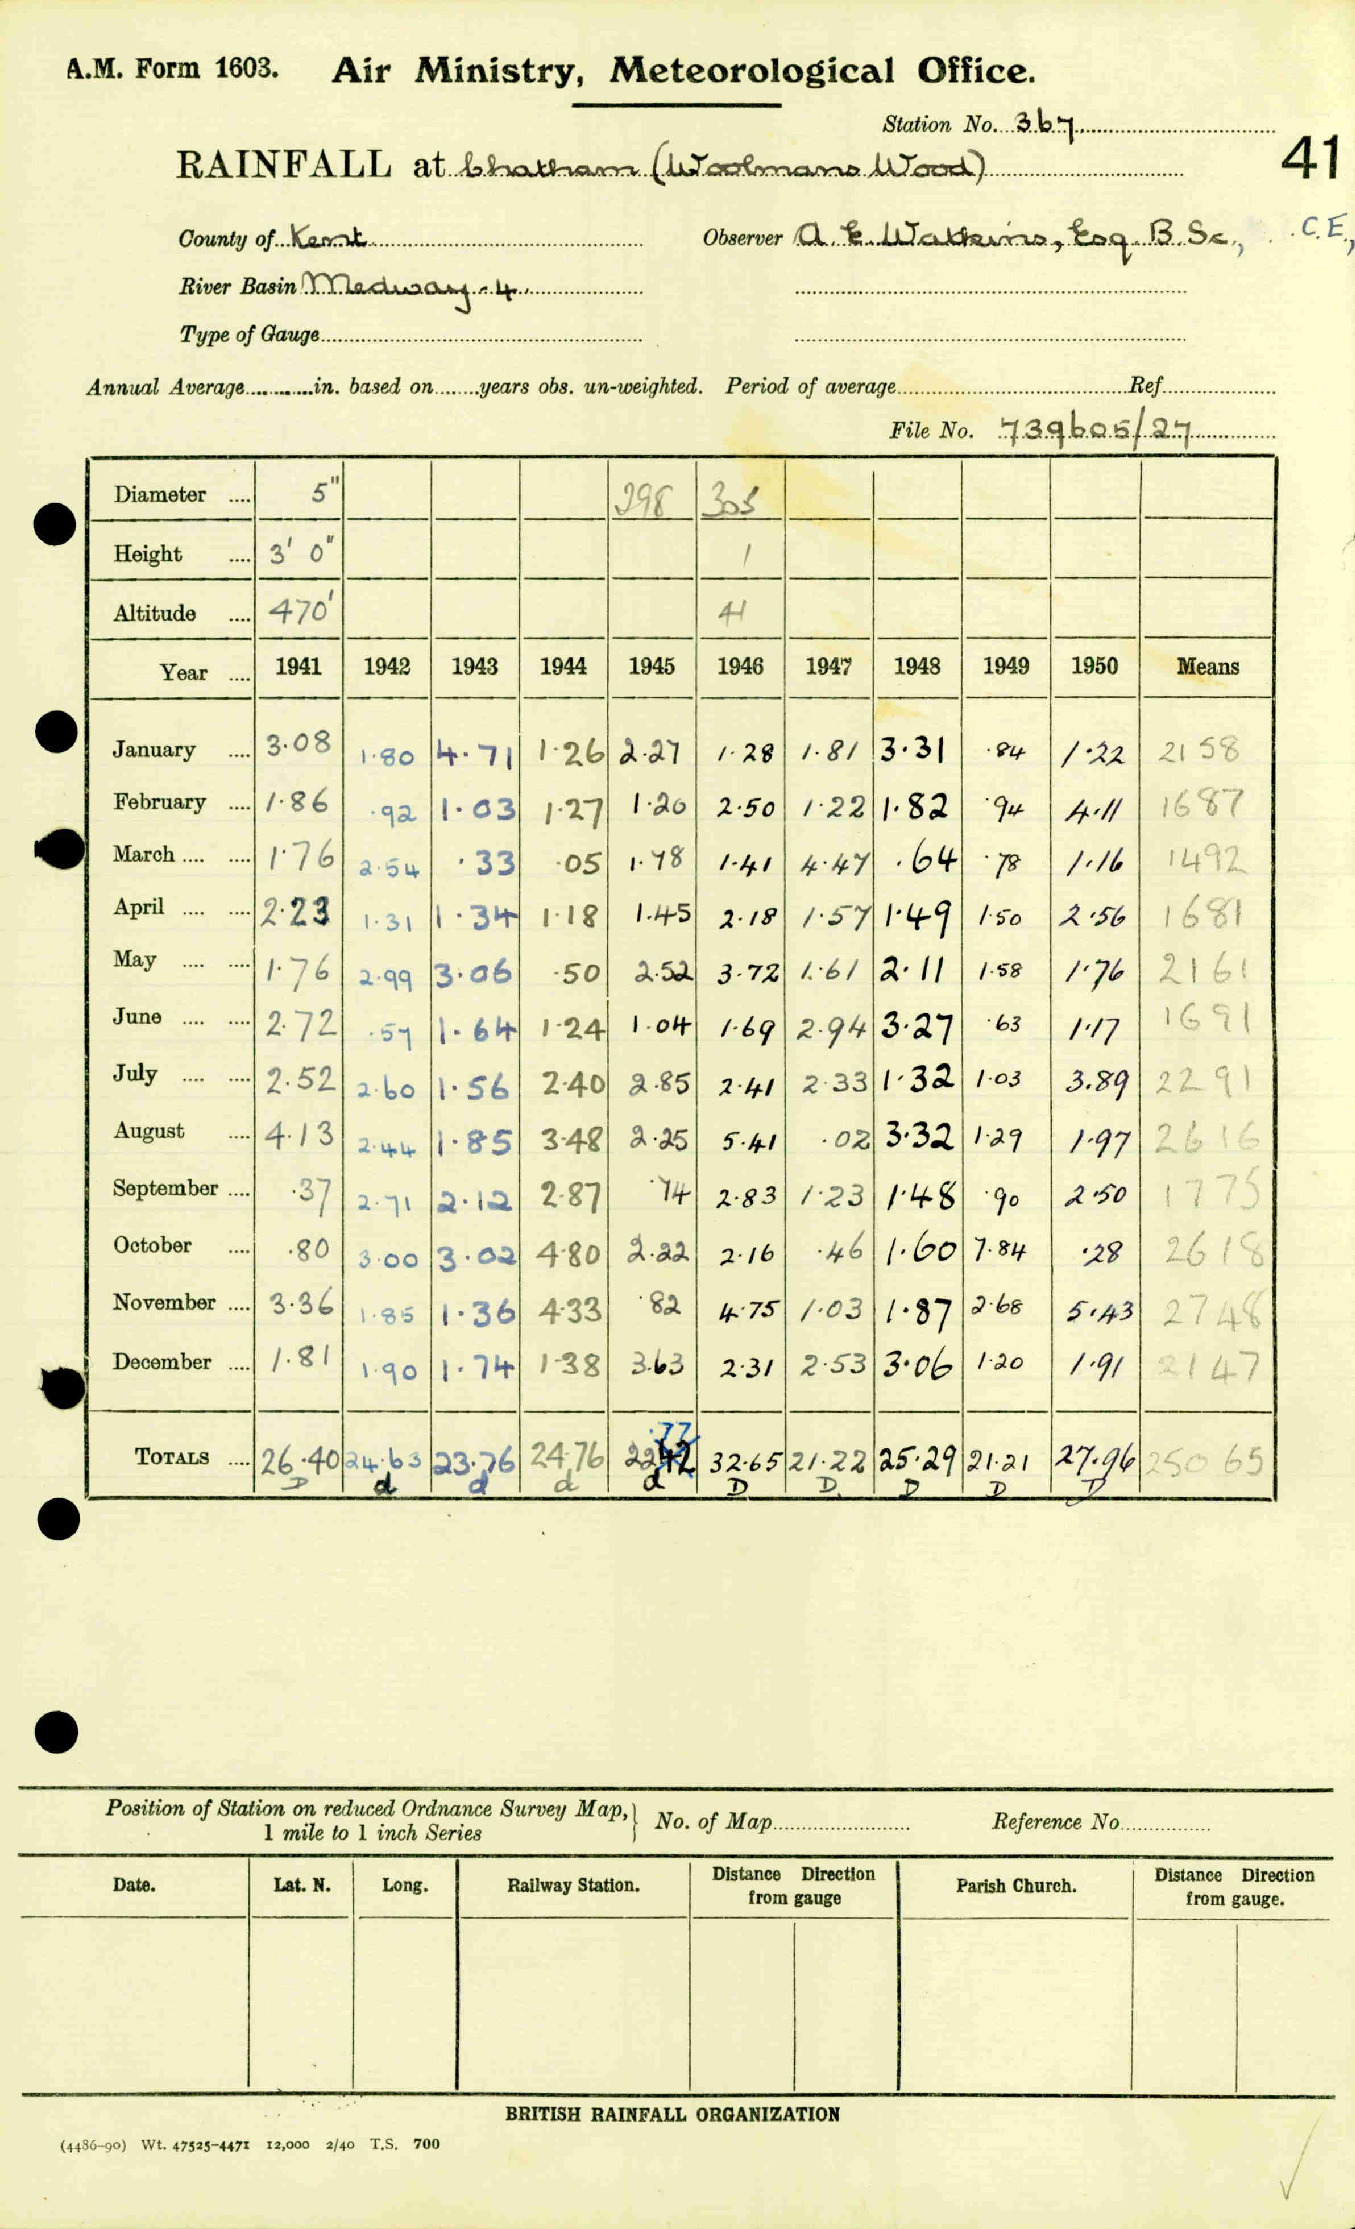 A.M. Form 1603. Air Ministry, Meteorological Office.
Station No. 367
RAINFALL at Chatham (Woolmans Wood) 41
County of Kent Observer A. E. Watkins, Esq. B.Sc., C.E.,
River Basin Medway - 4.
Type of Gauge
Annual Average in. based on years obs. un-weighted. Period of average Ref
File No. 739605/27
Diameter .... 5" 298 305
Height .... 3' 0" 1
Altitude .... 470' 41
Year .... 1941 1942 1943 1944 1945 1946 1947 1948 1949 1950 Means
January .... 3·08 1·80 4·71 1·26 2·27 1·28 1·81 3·31 ·84 1·22 21 58
February .... 1·86 ·92 1·03 1·27 1·20 2·50 1·22 1·82 ·94 4·11 1687
March .... .... 1·76 2·54 ·33 ·05 1·78 1·41 4·47 ·64 ·78 1·16 1492
April .... .... 2·23 1·31 1·34 1·18 1·45 2·18 1·57 1·49 1·50 2·56 1681
May .... .... 1·76 2·99 3·06 ·50 2·52 3·72 1·61 2·11 1·58 1·76 2161
June .... .... 2·72 ·57 1·64 1·24 1·04 1·69 2·94 3·27 ·63 1·17 1691
July .... .... 2·52 2·60 1·56 2·40 2·85 2·41 2·33 1·32 1·03 3·89 2291
August .... 4·13 2·44 1·85 3·48 2·25 5·41 ·02 3·32 1·29 1·97 2616
September .... ·37 2·71 2·12 2·87 ·74 2·83 1·23 1·48 ·90 2·50 1775
October .... ·80 3·00 3·02 4·80 2·22 2·16 ·46 1·60 7·84 ·28 2618
November .... 3·36 1·85 1·36 4·33 ·82 4·75 1·03 1·87 2·68 5·43 2748
December .... 1·81 1·90 1·74 1·38 3·63 2·31 2·53 3·06 1·20 1·91 2147
·77
TOTALS .... 26·40 24·63 23·76 24·76 22 42 32·65 21·22 25·29 21·21 27·96 250 65
D d d d d D D. D D D
Position of Station on reduced Ordnance Survey Map, No. of Map Reference No
1 mile to 1 inch Series
Date. Lat. N. Long. Railway Station. Distance Direction from gauge Parish Church. Distance Direction from gauge.
BRITISH RAINFALL ORGANIZATION
(4486-90) Wt. 47525-4471 12,000 2/40 T.S. 700